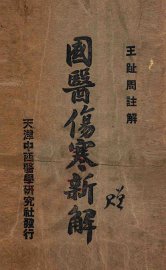 王趾周註解
國醫傷寒新解
天津中西醫學研究社發行